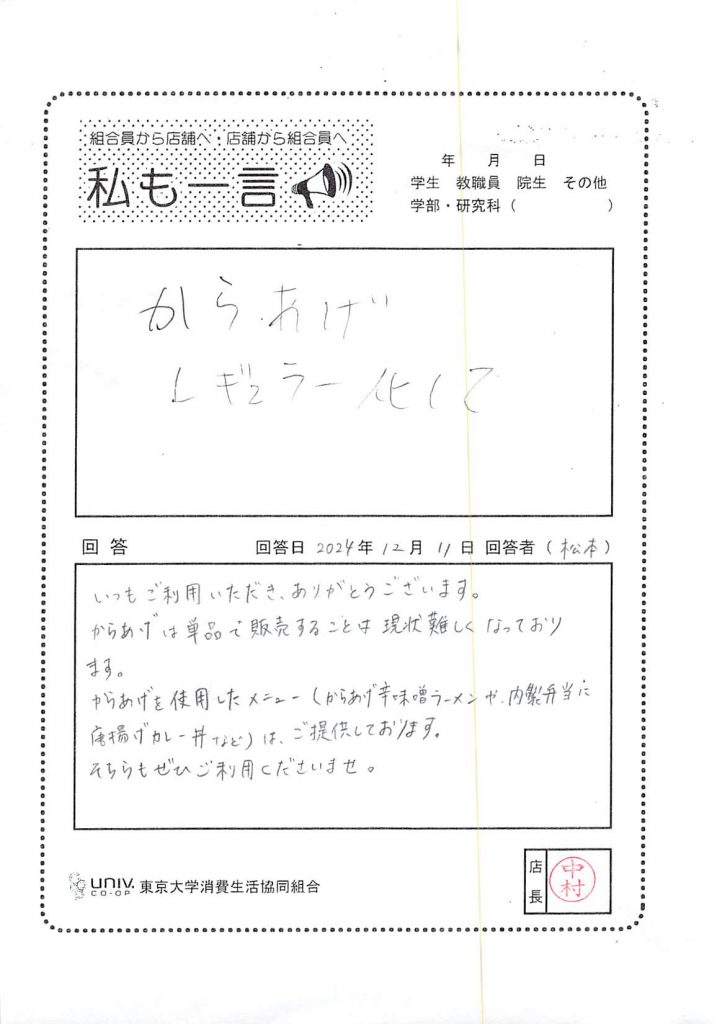 組合員から店舗へ・店舗から組合員へ
私も一言
年 月 日
学生 教職員 院生 その他
学部・研究科（ ）
からあげ
レギュラー化して
回答 回答日 2024年 12月 11日 回答者（松本）
いつもご利用いただき、ありがとうございます。
からあげは単品で販売することは現状難しくなっており
ます。
からあげを使用したメニュー（からあげ辛味噌ラーメンや、内製弁当に
唐揚げカレー丼など）は、ご提供しております。
そちらもぜひご利用くださいませ。
UNIV. CO-OP 東京大学消費生活協同組合
店長 中村